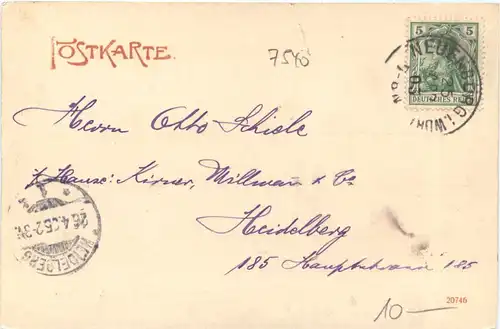 POSTKARTE.
7580
5 5
DEUTSCHES REICH
NEUENBÜRG i. WÜRT
Herrn Otto Schiele
z. Hause: Kirner, Willmann & Co
Heidelberg
185 Hauptstrasse 185
26.4.05.2-3N
HEIDELBERG
1.
10—
20746